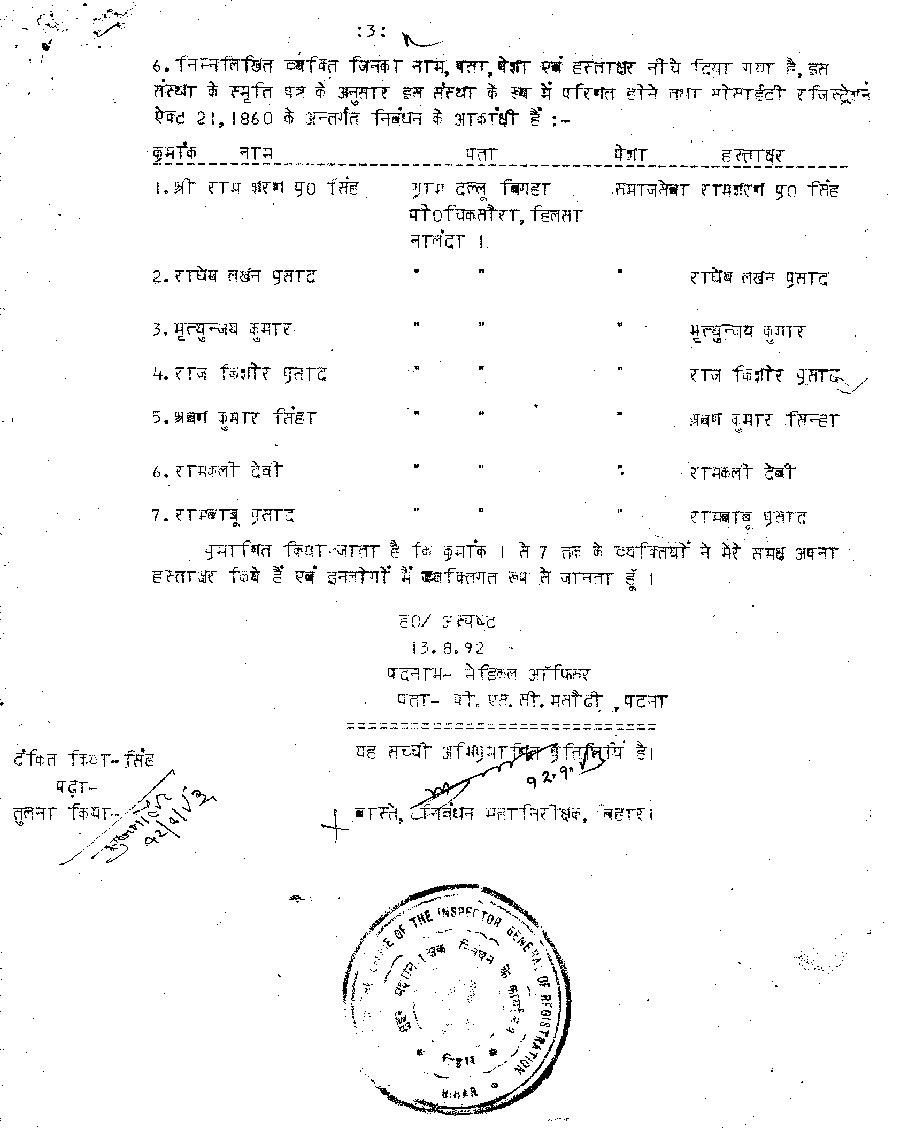 :3:
6. निम्नलिखित व्यक्ति जिनका नाम, पता, पेशा एवं हस्ताक्षर नीचे दिया गया है, इस
संस्था के स्मृति पत्र के अनुसार इस संस्था के रूप में परिणत होने तथा सोसाईटी रजिस्ट्रेशन
ऐक्ट 21, 1860 के अन्तर्गत निबंधन के आकांक्षी हैं :-
क्रमांक नाम पता पेशा हस्ताक्षर
1. श्री राम शरण प्र0 सिंह ग्राम दल्लू बिगहा समाजसेवा रामशरण प्र0 सिंह
पो0चिकसौरा, हिलसा
नालंदा ।
2. राघेष लखन प्रसाद " " " राघेष लखन प्रसाद
3. मृत्युन्जय कुमार " " " मृत्युन्जय कुमार
4. राज किशोर प्रसाद " " " राज किशोर प्रसाद
5. श्रबण कुमार सिंहा " " " श्रबण कुमार सिन्हा
6. रामकली देवी " " " रामकली देवी
7. रामबाबू प्रसाद " " " रामबाबू प्रसाद
प्रमाणित किया जाता है कि क्रमांक 1 से 7 तक के व्यक्तियों ने मेरे समक्ष अपना
हस्ताक्षर किये हैं एवं इनलोगों मैं व्यक्तिगत रूप से जानता हूँ ।
ह0/ अस्पष्ट
13.8.92
पदनाम- मेडिकल ऑफिसर
पता- पी. एच. सी. मसौढी, पटना
यह सच्ची अभिप्रमाणित प्रतिलिपि है।
टंकित किया- सिंह
पढ़ा-
तुलना किया-
वास्ते, निबंधन महानिरीक्षक, बिहार।
OFFICE OF THE INSPECTOR GENERAL OF REGISTRATION
BIHAR
बिहार